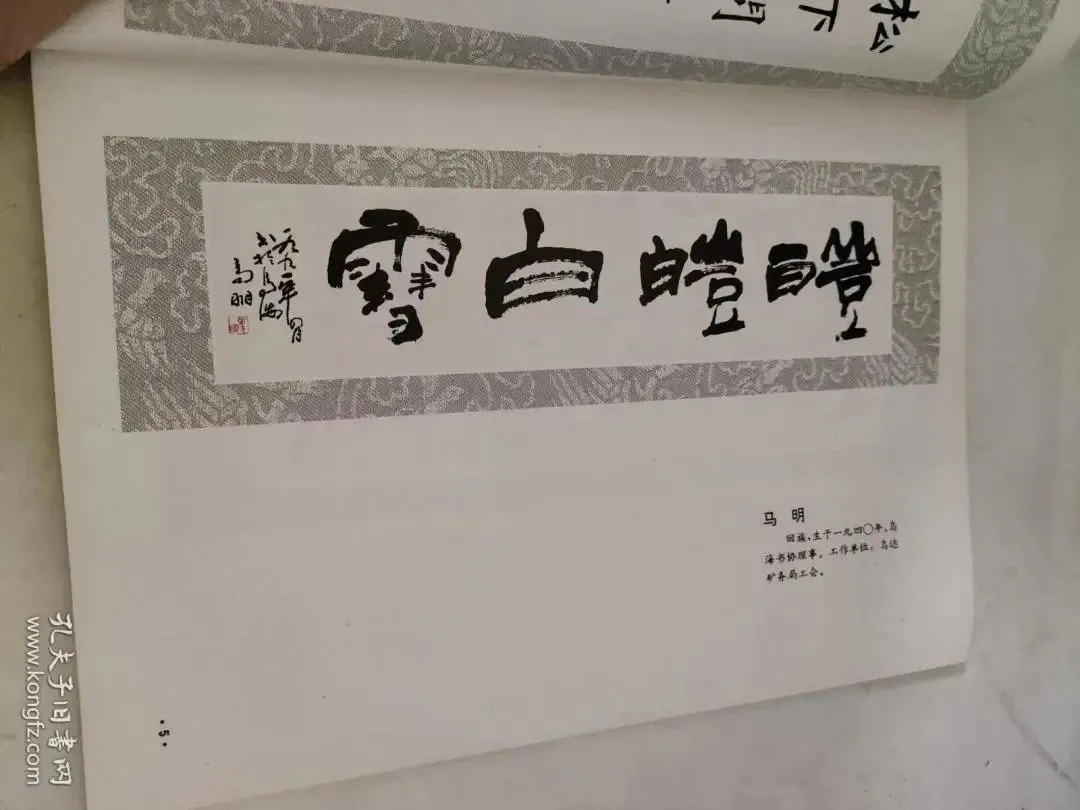 松
下
皚皚白雪
一九九一年
马明
马 明
回族，生于一九四〇年。乌
海书协理事。工作单位：乌达
矿务局工会。
·5·
孔夫子旧书网
www.kongfz.com